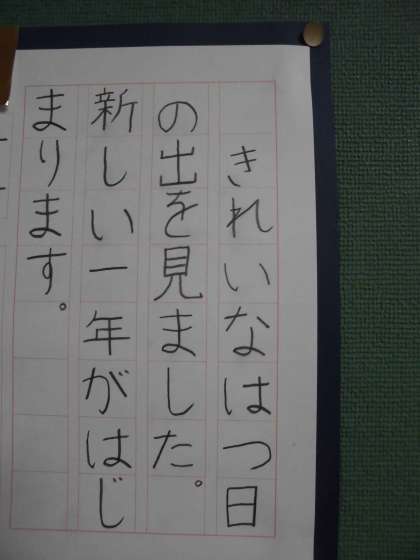 きれいなはつ日
の出を見ました。
新しい一年がはじ
まります。